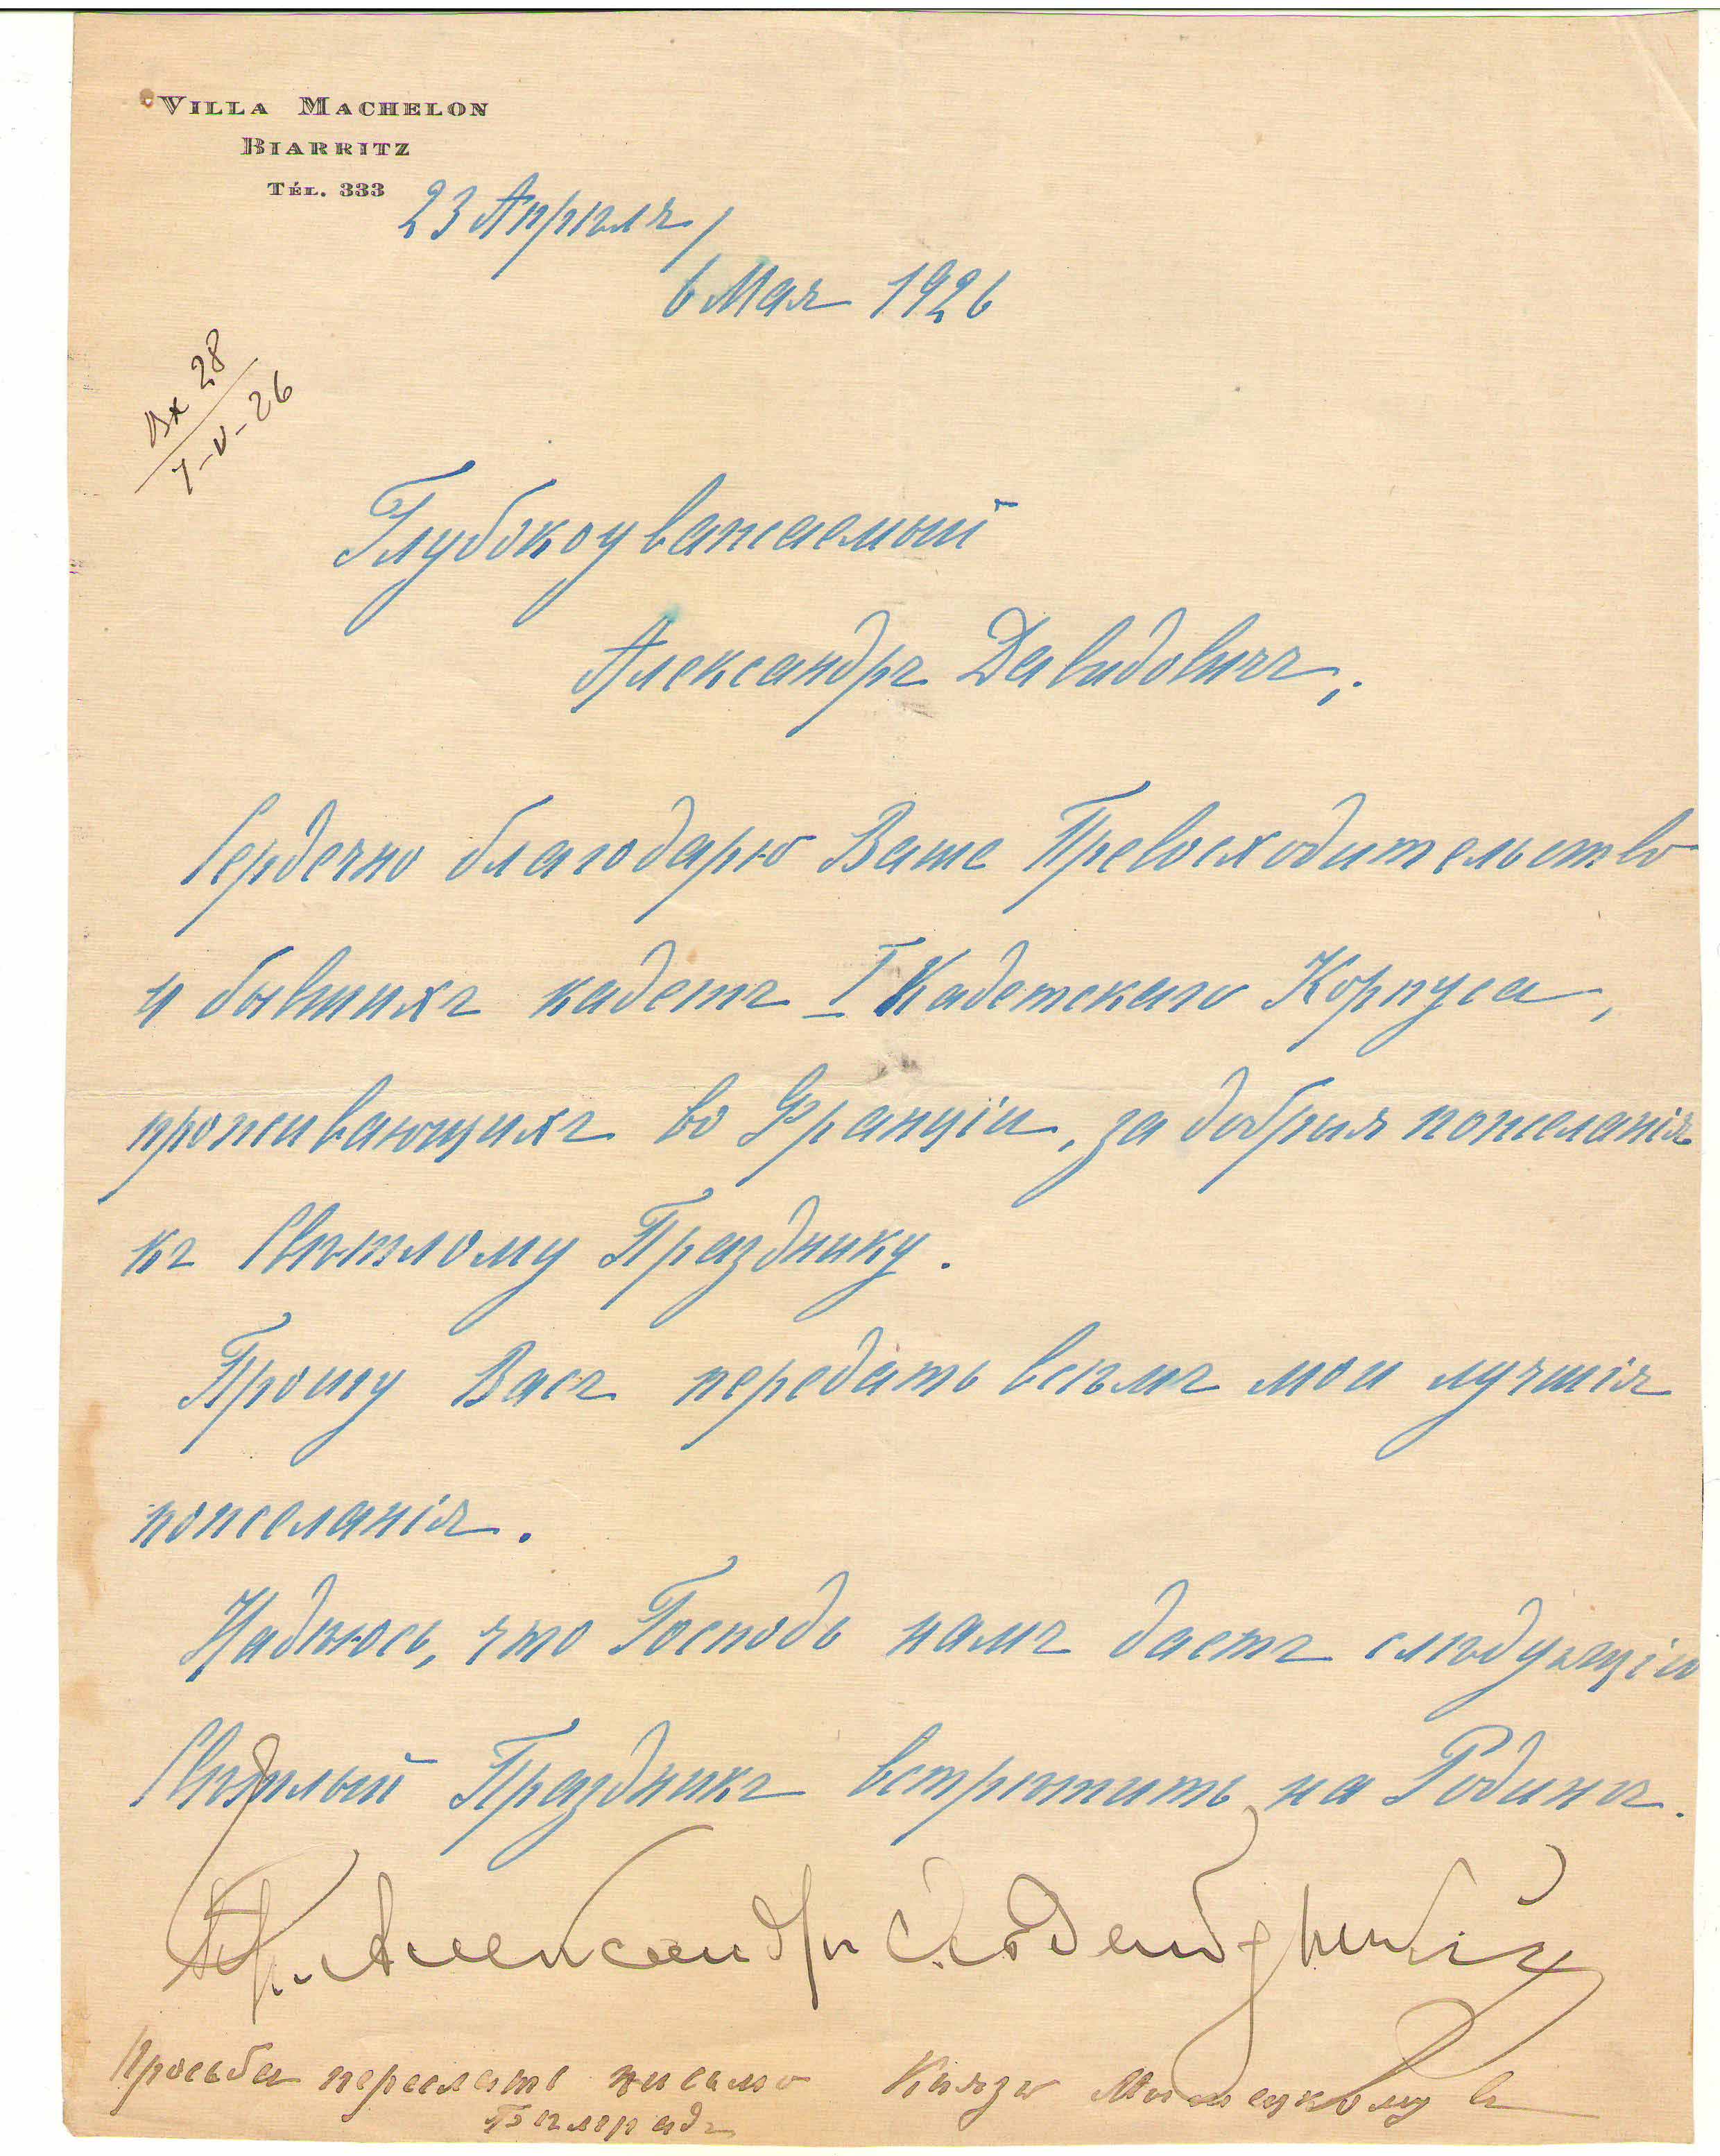 VILLA MACHELON
BIARRITZ
TÉL. 333
23 Апрѣля /
6 Мая 1926
Вх 28
7-V-26
Глубокоуважаемый
Александръ Давидовичъ,.
Сердечно благодарю Ваше Превосходительство
и бывшихъ кадетъ I Кадетскаго Корпуса,
проживающихъ во Франціи, за добрыя пожеланія
къ Свѣтлому Празднику.
Прошу Васъ передать всѣмъ мои лучшія
пожеланія.
Надѣюсь, что Господь намъ дастъ слѣдующій
Свѣтлый Праздникъ встрѣтить на Родинѣ.
Пр. Александръ Ольденбургскій
Просьба переслать письмо Князю в
Бѣлградъ